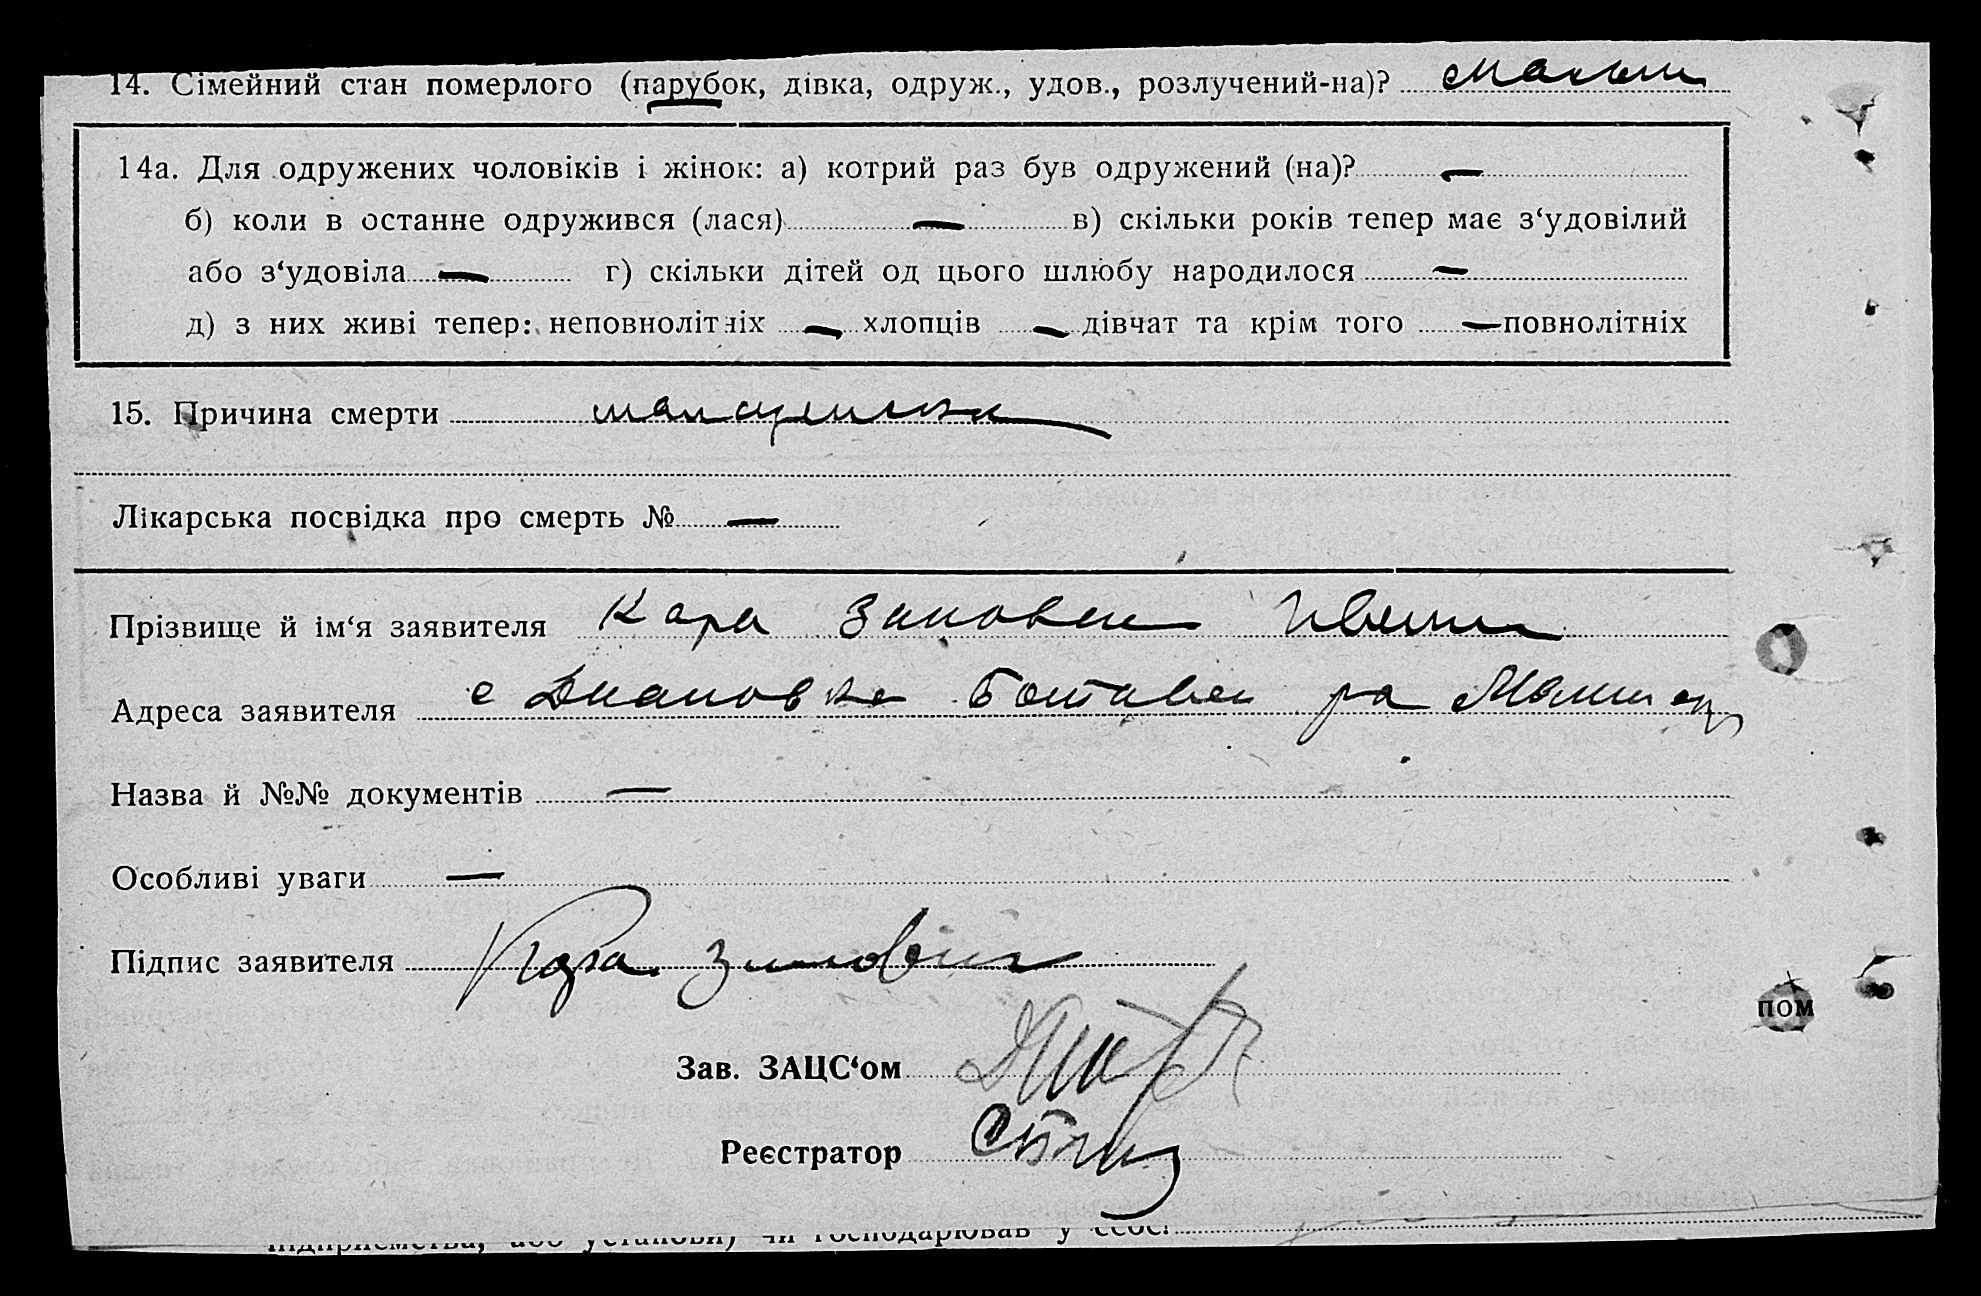 14. Сімейний стан померлого (парубок, дівка, одруж., удов., розлучений-на)?
14а. Для одружених чоловіків і жінок: а) котрий раз був одружений (на)? —
б) коли в останне одружився (лася) — в) скільки років тепер має з‘удовілий
або з‘удовіла — г) скільки дітей од цього шлюбу народилося —
д) з них живі тепер: неповнолітніх — хлопців — дівчат та крім того — повнолітніх
15. Причина смерти
Лікарська посвідка про смерть № —
Прізвище й ім‘я заявителя Кара Зиновей
Адреса заявителя с
Назва й №№ документів —
Особливі уваги —
Підпис заявителя Кара
Зав. ЗАЦС‘ом
Реєстратор
пом
підприємства, або установи) чи господарював у себе?